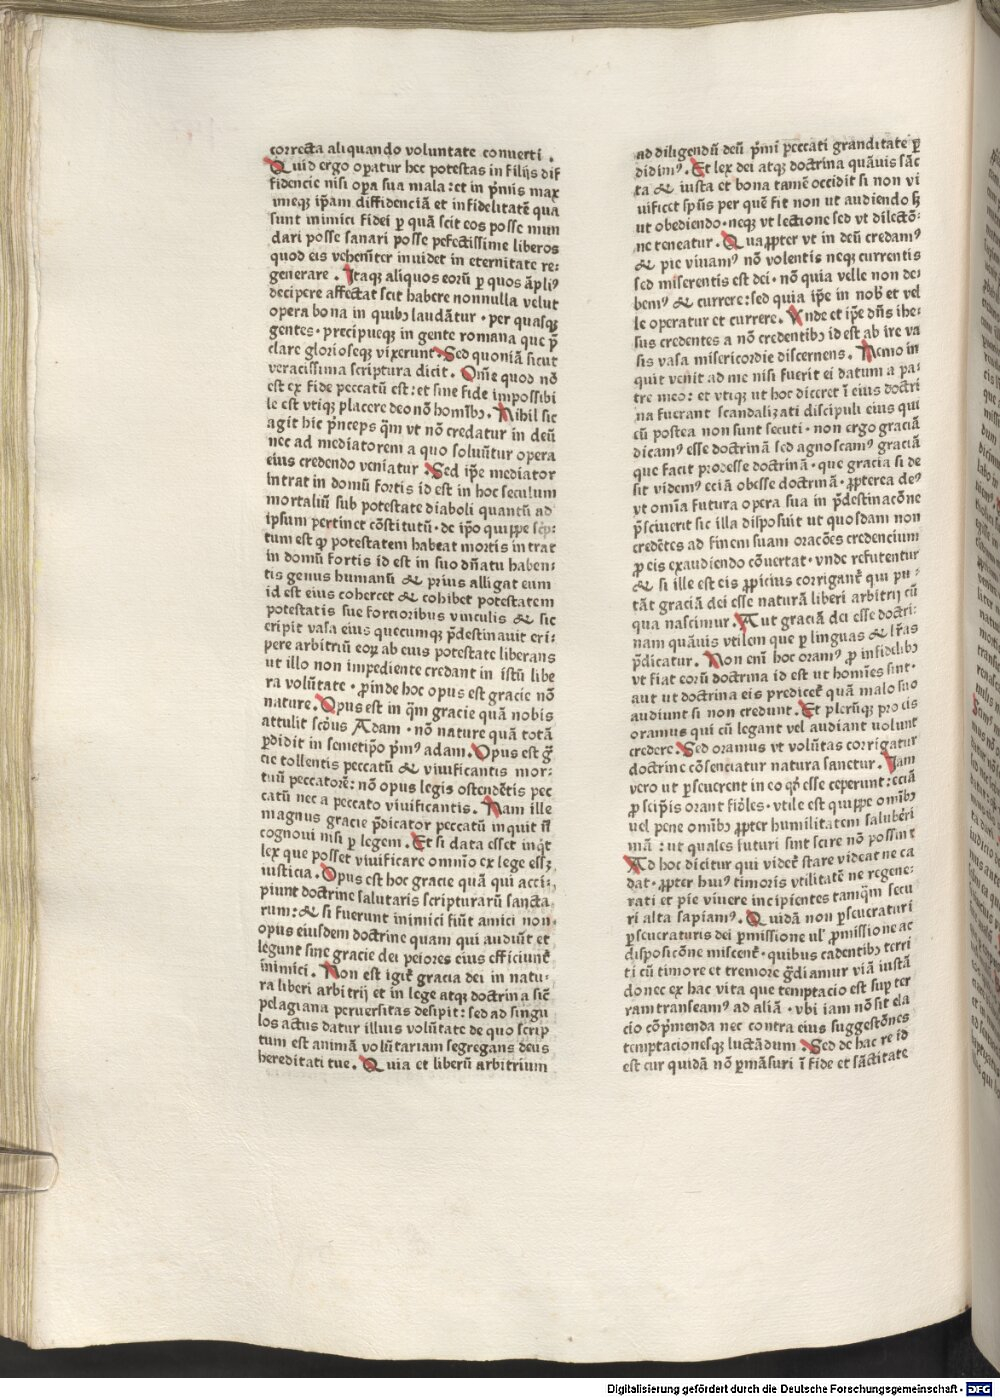 correcta aliquando voluntate conuerti .
Quid ergo oꝑatur hec potestas in filijs dif
fidencie nisi oꝑa sua mala : et in pͥmis max
imeqꝫ ip̄am diffidenciā et infidelitatē qua
sunt inimici fidei ꝑ quā scit eos posse mun
dari posse sanari posse ꝑfectissime liberos
quod eis vehemēter inuidet in eternitate re⸗
generare . Itaqꝫ aliquos eorū ꝑ quos āpliꝰ
decipere affectat scit habere nonnulla velut
opera bona in quibꝫ laudātur · per quasqꝫ
gentes · precipueqꝫ in gente romana que p̄
clare glorioseqꝫ vixerunt. Sed quoniā sicut
veracissima scriptura dicit . Om̄e quod nō
est ex fide peccatū est : et sine fide impossibi
le est vtiqꝫ placere deo nō homībꝫ. Nihil sic
agit hic pͥnceps q̄m vt nō credatur in deū
nec ad mediatorem a quo soluūtur opera
eius credendo veniatur . Sed ip̄e mediator
intrat in domū fortis id est in hoc seculum
mortaliū sub potestate diaboli quantū ad
ipsum pertinet cōstitutū · de ip̄o quippe sc̄p⸗
tum est ꝙ potestatem habeat mortis intrat
in domū fortis id est in suo dn̄atu haben⸗
tis genus humanū & prius alligat eum
id est eius cohercet & cohibet potestatem
potestatis sue forcioribus vinculis & sic
eripit vasa eius quecumqꝫ p̄destinauit eri⸗
pere arbitriū eoꝝ ab eius potestate liberans
ut illo non impediente credant in istū libe
ra volūtate · ꝓinde hoc opus est gracie nō
nature. Opus est in q̄m gracie quā nobis
attulit scd̄us Adam · nō nature quā totā
ꝑdidit in semetip̄o pͥmꝰ adam. Opus est ḡ
cie tollentis peccatū & viuificantis mor⸗
tuū peccatorē : nō opus legis ostendētis pec
catū nec a peccato viuificantis . Nam ille
magnus gracie p̄dicator peccatū inquit nō
cognoui nisi ꝑ legem . Et si data esset inqͥt
lex que posset viuificare omnīo ex lege essꝫ
iusticia . Opus est hoc gracie quā qui acci⸗
piunt doctrine salutaris scripturarū sancta
rum : & si fuerunt inimici fiūt amici non
opus eiusdem doctrine quam qui audiūt et
legunt sine gracie dei peiores eius efficiunt̄
inimici . Non est igit̄ gracia dei in natu⸗
ra liberi arbitrij et in lege atqꝫ doctrina sic̄
pelagiana peruersitas desipit : sed ad singu
los actus datur illius volūtate de quo scrip
tum est animā volūtariam segregans deus
hereditati tue . Quia et liberū arbitrium
ad diligendū deū pͥmi peccati granditate ꝑ
didimꝰ . Et lex dei atqꝫ doctrina quāuis sāc
ta & iusta et bona tamē occidit si non vi
uificet sp̄us per quē fit non ut audiendo sꝫ
ut obediendo · neqꝫ vt lectione sed vt dilectō⸗
ne teneatur . Quaꝓpter vt in deū credamꝰ
& pie viuamꝰ nō volentis neqꝫ currentis
sed miserentis est dei · nō quia velle non de⸗
bemꝰ & currere : sed quia ip̄e in nob̄ et vel
le operatur et currere . Vnde et ip̄e dn̄s ihe⸗
sus credentes a nō credentibꝫ id est ab ire va
sis vasa misericordie discernens . Nemo in
quit venit ad me nisi fuerit ei datum a pa⸗
tre meo : et vtiqꝫ ut hoc diceret ī eius doctri
na fuerant scandalizati discipuli eius qui
cū postea non sunt secuti · non ergo graciā
dicamꝰ esse doctrinā sed agnoscamꝰ graciā
que facit prodesse doctrinā · que gracia si de
sit videmꝰ eciā obesse doctrinā · ꝓpterea deꝰ
vt omīa futura opera sua in p̄destinacōne
p̄sciuerit sic illa disposuit ut quosdam non
credētes ad finem suam oracōes credencium
ꝓ eis exaudiendo cōuertat · vnde refutentur
& si ille est eis ꝓpicius corrigant̄ qui pu⸗
tāt graciā dei esse naturā liberi arbitrij cū
qua nascimur . Aut graciā dei esse doctri⸗
nam quāuis vtilem que ꝑ linguas & lr̄as
p̄dicatur . Non enī hoc oramꝰ ꝓ infidelibꝫ
vt fiat eorū doctrina id est ut homīes sint ·
aut ut doctrina eis predicet̄ quā malo suo
audiunt si non credunt . Et plerūqꝫ pro eis
oramus qui cū legant vel audiant nolunt
credere . Sed oramus vt volūtas corrigatur
doctrine cōsenciatur natura sanetur . Nam
vero ut ꝑseuerent in eo qd̄ esse ceperunt : eciā
ꝓ seip̄is orant fid̄les · vtile est quippe omībꝫ
uel pene omībꝫ ꝓpter humilitatem salub̄ri
mā : ut quales futuri sint scire nō possint
Ad hoc dicitur qui videt̄ stare videat ne ca
dat · ꝓpter huiꝰ timoris vtilitatē ne regene⸗
rati et pie viuere incipientes tamq̄m secu
ri alta sapiamꝰ . Quidā non ꝑseueraturi
ꝑseueraturis dei ꝑmissione ul̓ ꝓmissione ac
disposicōne miscent̄ · quibus cadentibꝫ terri
ti cū timore et tremore ḡdiamur viā iustā
donec ex hac vita que temptacio est sup ter
ram transeamꝰ ad aliā · vbi iam nō sit ela
cio cōp̄menda nec contra eius suggestōnes
temptacionesqꝫ luctādum . Sed de hac re id
est cur quidā nō ꝑmāsuri ī fide et sāctitate
Digitalisierung gefördert durch die Deutsche Forschungsgemeinschaft - DFG